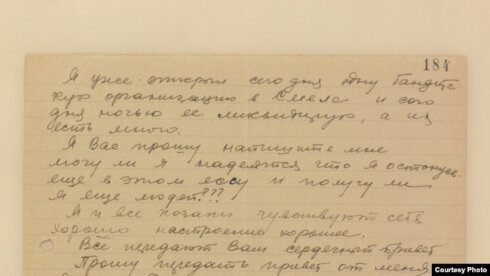 184
Я уже открыл сегодня одну бандитс-
кую организацию в Смеле и сего
дня ночью ее ликвидирую, а их
есть много.
Я Вас прошу напишите мне
могу ли я надеятся что я останусь
еще в этом и получу ли
я еще людей???
Я и все козаки чувствуют себя
хорошо настроение хорошее.
Все передают Вам сердечный привет
Прошу передать привет от меня
Courtesy Photo